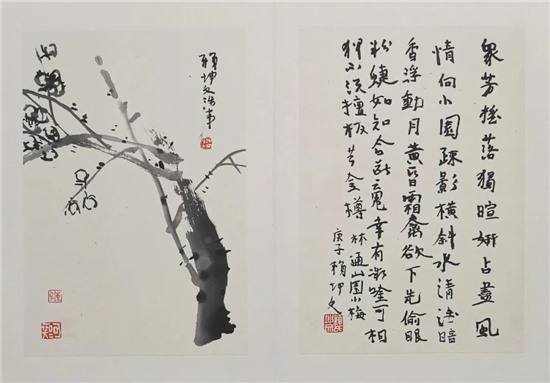 衆芳摇落獨暄妍占盡風
情向小園疏影横斜水清淺暗
香浮動月黄昏霜禽欲下先偷眼
粉蝶如知合斷魂幸有微吟可相
狎不須檀板共金樽 林逋山園小梅
庚子賴坤文
賴坤文